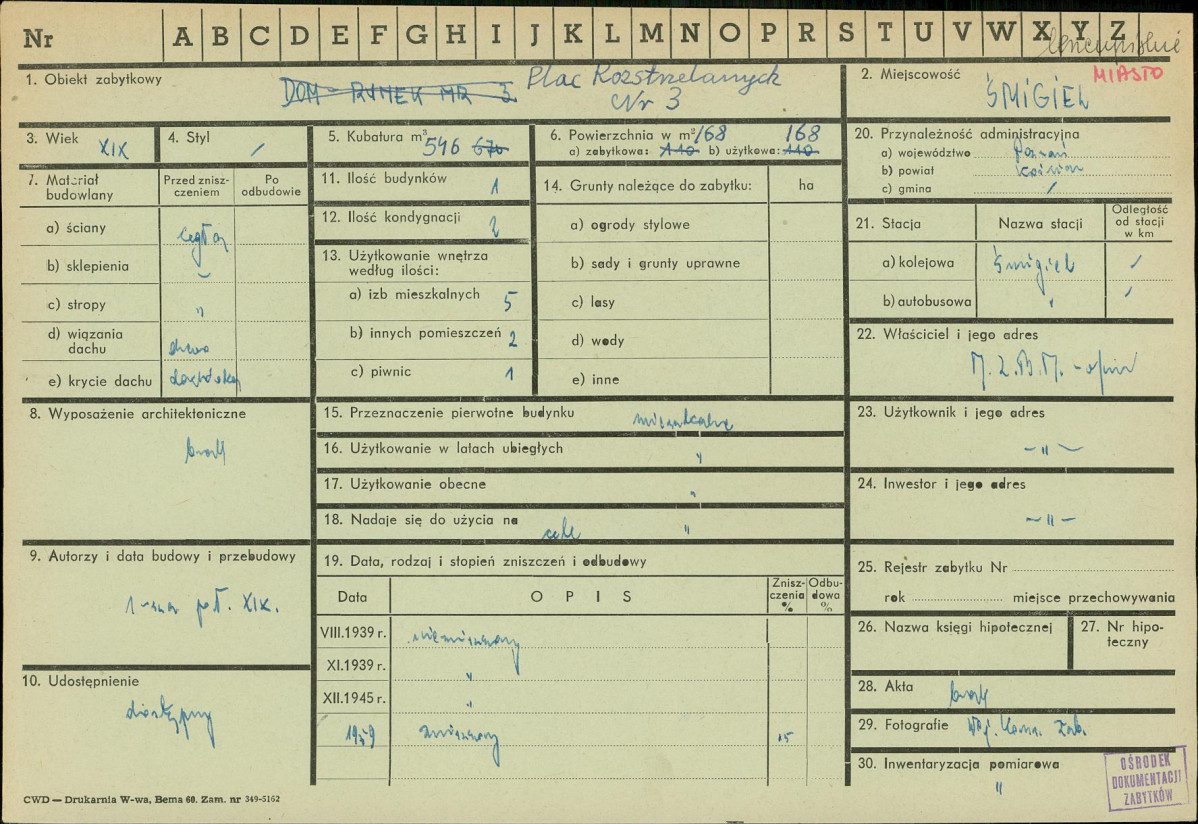 Nr A B C D E F G H I J K L M N O P R S T U V W X Y Z
1. Obiekt zabytkowy
DOM - RYNEK NR 3
Plac Rozstrzelanych
Nr 3
2. Miejscowość
MIASTO
ŚMIGIEL
3. Wiek XIX
4. Styl /
5. Kubatura m³ 546 670
6. Powierzchnia w m² 168 168
a) zabytkowa: 110 b) użytkowa: 110
20. Przynależność administracyjna
a) województwo Poznań
b) powiat Kościan
c) gmina /
7. Materiał budowlany
Przed znisz-
czeniem
Po
odbudowie
a) ściany cegła
b) sklepienia
c) stropy "
d) wiązania
dachu drewno
e) krycie dachu dachówka
11. Ilość budynków 1
12. Ilość kondygnacji 2
13. Użytkowanie wnętrza
według ilości:
a) izb mieszkalnych 5
b) innych pomieszczeń 2
c) piwnic 1
14. Grunty należące do zabytku: ha
a) ogrody stylowe
b) sady i grunty uprawne
c) lasy
d) wody
e) inne
21. Stacja
Nazwa stacji
Odległość
od stacji
w km
a) kolejowa Śmigiel /
b) autobusowa " /
22. Właściciel i jego adres
M.Z.B.M. -
8. Wyposażenie architektoniczne
brak
15. Przeznaczenie pierwotne budynku mieszkalne
16. Użytkowanie w latach ubiegłych "
17. Użytkowanie obecne "
18. Nadaje się do użycia na cele "
23. Użytkownik i jego adres
- " -
24. Inwestor i jego adres
- " -
9. Autorzy i data budowy i przebudowy
1-sza poł. XIX.
19. Data, rodzaj i stopień zniszczeń i odbudowy
Data
O P I S
Znisz-
czenia
%
Odbu-
dowa
%
VIII.1939 r. niezniszczony
XI.1939 r. "
XII.1945 r. "
1959 zniszczony 15
25. Rejestr zabytku Nr
rok miejsce przechowywania
26. Nazwa księgi hipotecznej
27. Nr hipo-
teczny
10. Udostępnienie
dostępny
28. Akta brak
29. Fotografie Woj. Kons. Zab.
30. Inwentaryzacja pomiarowa
"
OŚRODEK
DOKUMENTACJI
ZABYTKÓW
CWD — Drukarnia W-wa, Bema 60. Zam. nr 349-5162